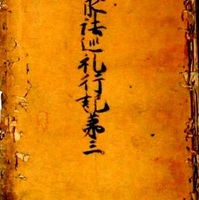 求法巡礼行記第三